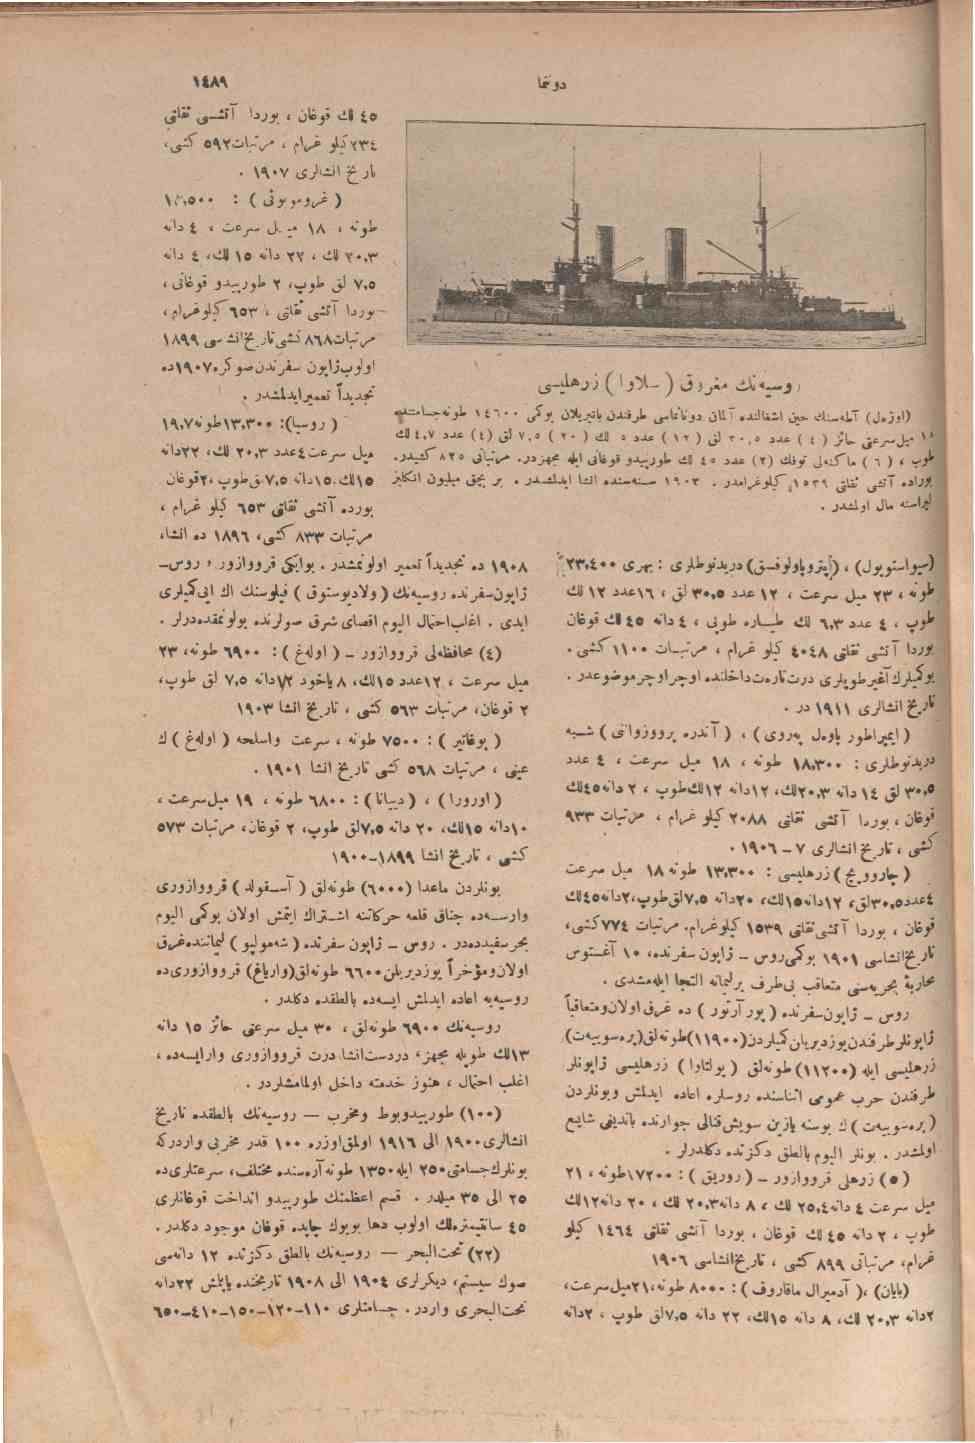 دوننما
١٤٨٩
روسیه‌نك مغروق (سلاوا) زرهلیسی
(اوزه‌ل) آطه‌سنك حین اشغالنده آلمان دونانماسی طرفندن باتیریلان بوكمی ١٤٦٠٠ طونه جسامتنده
١٨ میل سرعتی حائز (٤) عدد ٣٠,٥ لق (١٢) عدد ١٥ لك (٢٠) ٧,٥ لق (٤) عدد ٤,٧ لك
طوب ، (٦) ماكنه‌لی توفك (٢) عدد ٤٥ لك طورپیدو قوغانی ایله مجهزدر. مرتباتی ٨٢٥ كشیدر.
بوراده آتشی ثقلتی ١٥٣٩ كیلوغرامدر . ١٩٠٣ سنه‌سنده انشا ایدلمشدر . بر بچق میلیون انكلیز
لیراسنه مال اولمشدر .
(سیواستوپول) ، (پتروپاولوفسق) دریدنوطلری : بهری ٢٣,٤٠٠
طونه ، ٢٣ میل سرعت ، ١٢ عدد ٣٠,٥ لق ، ١٦ عدد ١٢ لك
طوپ ، ٤ عدد ٦,٣ لك طیاره طوپی ، ٤ دانه ٤٥ لك قوغان
بوردا آتشی ثقلتی ٤٠٤٨ كیلو غرام ، مرتبات ١١٠٠ كشی .
بوكمیلرك آغیر طوپلری درت تاره‌ت داخلنده اوچر اوچر موضوعدر .
تاریخ انشالری ١٩١١ در .
(ایمپراطور پاوه‌ل په‌روی) ، (آندره پرووزوانی) شبه
دریدنوطلری : ١٨,٣٠٠ طونه ، ١٨ میل سرعت ، ٤ عدد
٣٠,٥ لق ١٤ دانه ٢٠,٣ لك، ١٢ دانه ١٢ لك طوپ ، ٢ دانه ٤٥ لك
قوغان ، بوردا آتشی ثقلتی ٢٠٨٨ كیلو غرام ، مرتبات ٩٣٣
كشی ، تاریخ انشالری ٧ – ١٩٠٦ .
(چاروویچ) زرهلیسی : ١٣,٣٠٠ طونه ١٨ میل سرعت
٤ عدد ٣٠,٥ لق، ١٢ دانه ١٥ لك، ٢٠ دانه ٧,٥ لق طوپ، ٢ دانه ٤٥ لك
قوغان ، بوردا آتشی ثقلتی ١٥٣٩ كیلوغرام. مرتبات ٧٧٤ كشی،
تاریخ انشاسی ١٩٠١ بوكمی روس – ژاپون سفرنده، ١٠ آغستوس
محاربهٔ بحریه‌سنی متعاقب بی‌طرف بر لیمانه التجا ایله‌مشدی .
روس – ژاپون سفرنده (پور آرتور) ده غرق اولان ومتعاقباً
ژاپونلر طرفندن یوزدیریلن كمیلردن (١١٩٠٠) طونه‌لق (پره‌سویه‌ت)
زرهلیسی ایله (١١٢٠٠) طونه‌لق (پولتاوا) زرهلیسی ژاپونلر
طرفندن حرب عمومی اثناسنده روسلره اعاده ایدلمش وبونلردن
(پره‌سویه‌ت) ك بوسنه یازین سویش قنالی جوارنده باتدیغی شایع
اولمشدر . بونلر الیوم بالطق دكزنده دكلدرلر .
(٥) زرهلی قرووازور – (روریق) : ١٧٢٠٠ طونه ، ٢١
میل سرعت ٤ دانه ٢٥,٤ لك ، ٨ دانه ٢٠,٣ لك ، ٢٠ دانه ١٢ لك
طوپ ، ٢ دانه ٤٥ لك قوغان ، بوردا آتشی ثقلتی ١٤٦٤ كیلو
غرام، مرتباتی ٨٩٩ كشی ، تاریخ انشاسی ١٩٠٦
(بایان) ، (آدمیرال ماقاروف) : ٨٠٠٠ طونه، ٢١ میل سرعت،
٢ دانه ٢٠,٣ لك، ٨ دانه ١٥ لك، ٢٢ دانه ٧,٥ لق طوپ ، ٢ دانه
٤٥ لك قوغان ، بوردا آتشی ثقلتی
٢٣٤ كیلو غرام ، مرتبات ٥٩٢ كشی،
تاریخ انشالری ١٩٠٧ .
(غروموبوئی) :
طونه ، ١٨ میل سرعت ، ٤ دانه
٢٠,٣ لك ، ٢٢ دانه ١٥ لك، ٤ دانه
٧,٥ لق طوپ، ٢ طورپیدو قوغانی ،
بوردا آتشی ثقلتی ، ٦٥٣ كیلوغرام،
مرتبات ٨٦٨ كشی تاریخ انشاسی ١٨٩٩
اولوب ژاپون سفرندن صوكره ١٩٠٧ ده
تجدیداً تعمیر ایدلمشدر .
(روسیا): ١٣,٣٠٠ طونه ١٩,٧
میل سرعت ٤ عدد ٢٠,٣ لك، ٢٢ دانه
١٥ لك. ١٥ دانه ٧,٥ لق طوپ ، ٢ قوغان
بورده آتشی ثقلتی ٦٥٣ كیلو غرام ،
مرتبات ٨٣٣ كشی، ١٨٩٦ ده انشا،
١٩٠٨ ده تجدیداً تعمیر اولونمشدر . بوایكی قرووازور ، روس –
ژاپون سفرنده روسیه‌نك (ولادیوستوق) فیلوسنك اك ایی كمیلری
ایدی . اغلب احتمال الیوم اقصای شرق صولرنده بولونمقده‌درلر .
(٤) محافظه‌لی قرووازور – (اوله‌غ) : ٦٩٠٠ طونه، ٢٣
میل سرعت ، ١٢ عدد ١٥ لك، ٨ یاخود ١٢ دانه ٧,٥ لق طوپ،
٢ قوغان، مرتبات ٥٦٣ كشی ، تاریخ انشا ١٩٠٣
(بوغاتیر) : ٧٥٠٠ طونه ، سرعت واسلحه (اوله‌غ) ك
عینی ، مرتبات ٥٦٨ كشی تاریخ انشا ١٩٠١ .
(اورورا) ، (دییانا) : ٦٨٠٠ طونه ، ١٩ میل سرعت ،
١٠ دانه ١٥ لك، ٢٠ دانه ٧,٥ لق طوپ، ٢ قوغان، مرتبات ٥٧٣
كشی ، تاریخ انشا ١٨٩٩–١٩٠٠
بونلردن ماعدا (٦٠٠٠) طونه‌لق (آسقولد) قرووازوری
وارسه‌ده چناق قلعه حركاتنه اشتراك ایتمش اولان بوكمی الیوم
بحر سفیدده‌در. روس – ژاپون سفرنده (شه‌مولپو) لیماننده غرق
اولان ومؤخراً یوزدیریلن ٦٦٠٠ طونه‌لق (واریاغ) قرووازوری‌ده
روسیه‌یه اعاده ایدلمش ایسه‌ده بالطقده دكلدر .
روسیه‌نك ٦٩٠٠ طونه‌لق ، ٣٠ میل سرعتی حائز ١٥ دانه
١٣ لك طوپله مجهز، دردست انشا درت قرووازوری وار ایسه‌ده ،
اغلب احتمال ، هنوز خدمته داخل اولمامشلردر .
(١٠٠) طورپیدوبوط ومخرب — روسیه‌نك بالطقده تاریخ
انشالری ١٩٠٠ الی ١٩١٦ اولمق اوزره ١٠٠ قدر مخربی واردركه
بونلرك جسامتی ٢٥٠ ایله ١٣٥٠ طونه آره‌سنده مختلف، سرعتلری‌ده
٢٥ الی ٣٥ میلدر . قسم اعظمنك طورپیدو انداخت قوغانلری
٤٥ سانتیمتره‌لك اولوب دها بویوك چاپده قوغان موجود دكلدر .
(٢٢) تحت‌البحر — روسیه‌نك بالطق دكزنده ١٢ دانه‌سی
صوك سیستم، دیكرلری ١٩٠٤ الی ١٩٠٨ تاریخنده یاپلمش ٢٢ دانه
تحت‌البحری واردر. جسامتلری ١١٠–١٢٠–١٥٠–٤١٠–٦٥٠